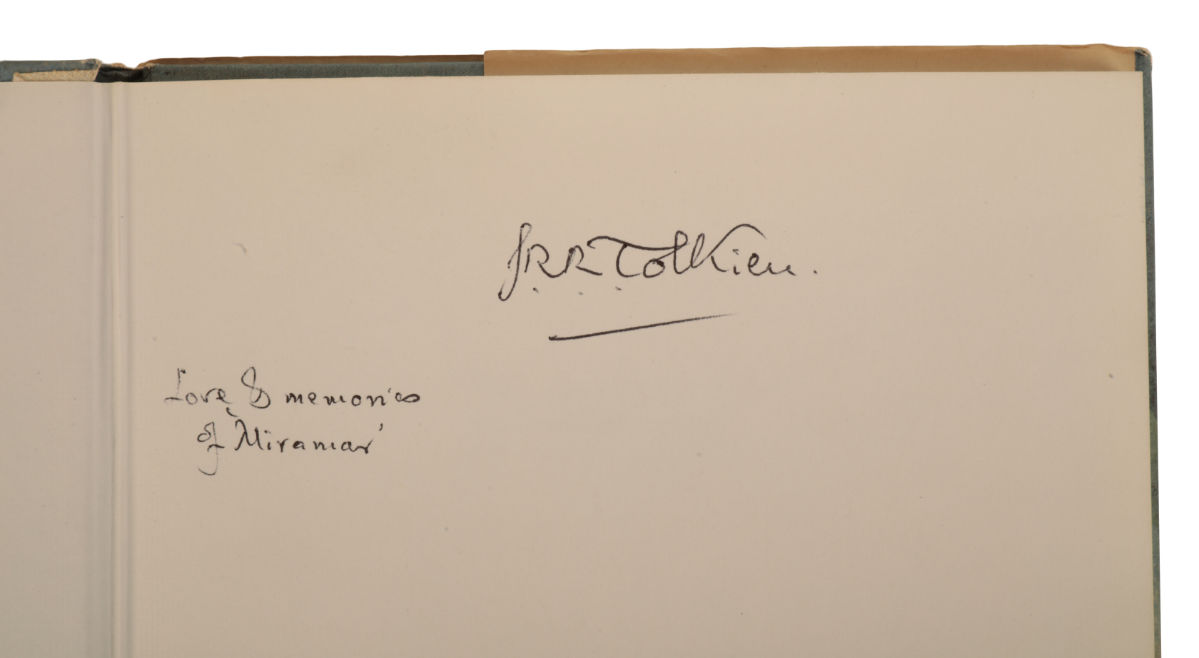 JRR Tolkien.
Love & memories
of 'Miramar'